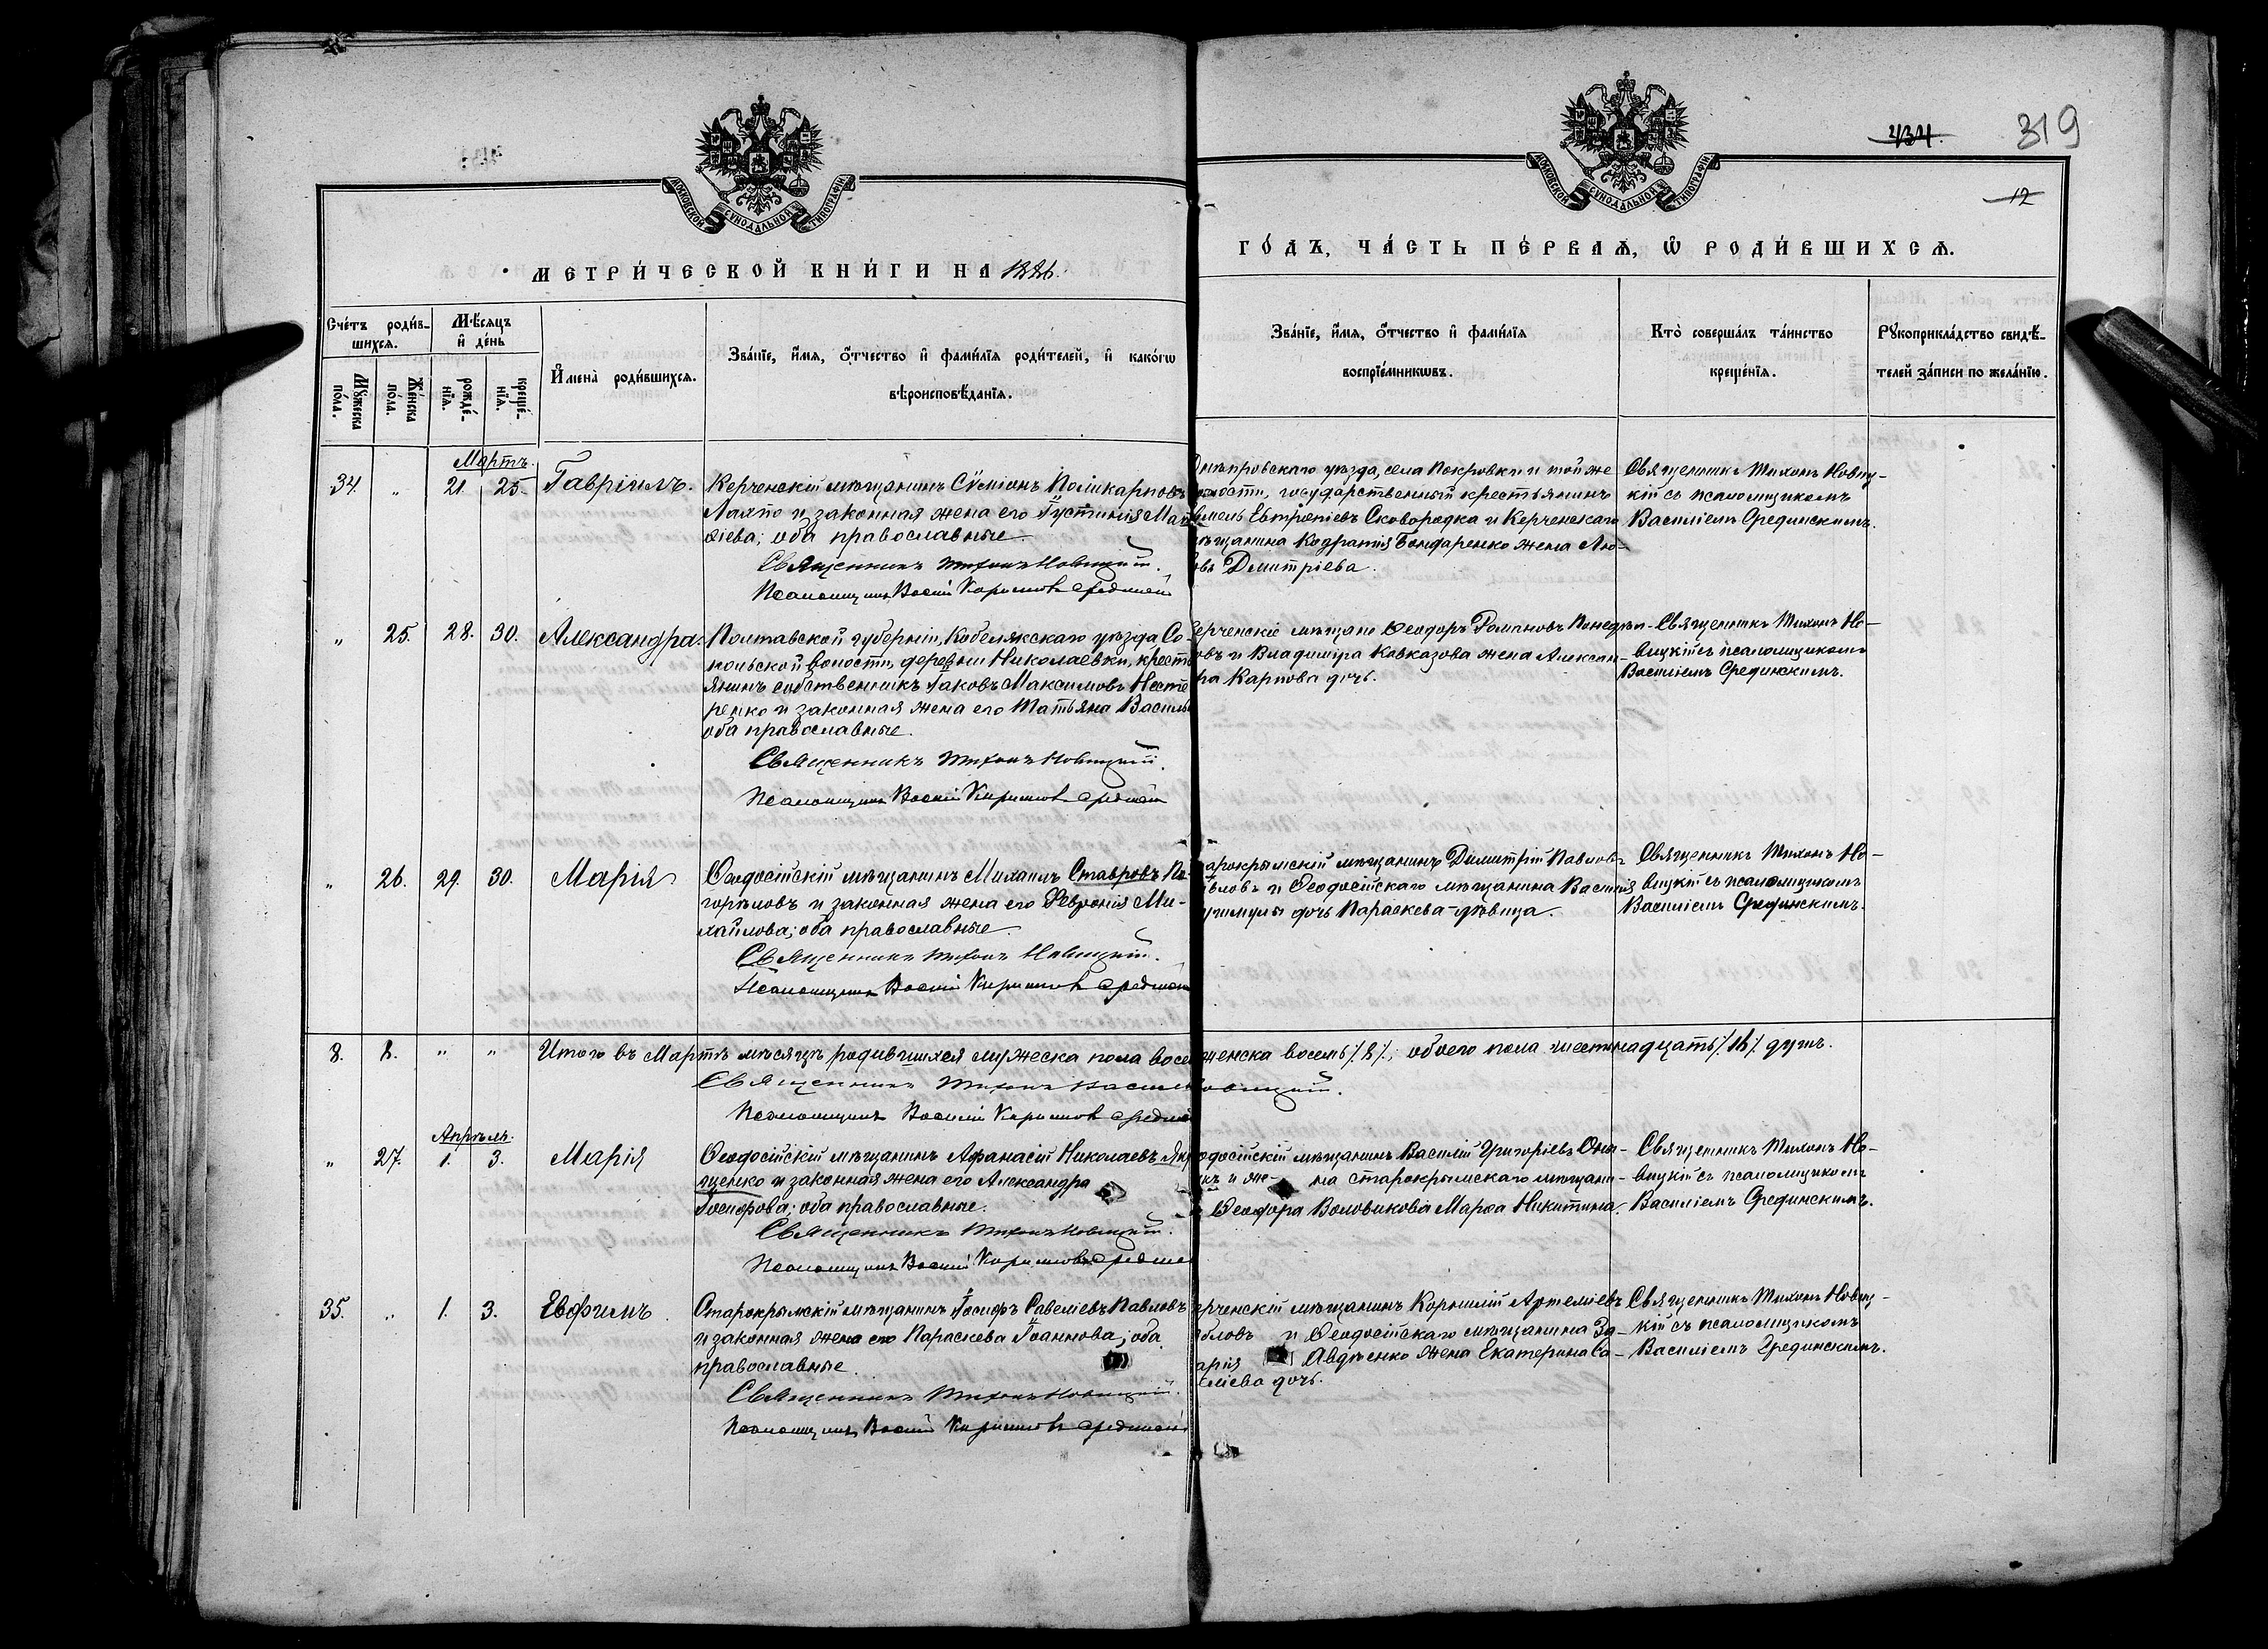 434.
319
12
МОСКОВСКОЙ СУНОДАЛЬНОЙ ТИПОГРАФІИ
МОСКОВСКОЙ СУНОДАЛЬНОЙ ТИПОГРАФІИ
МЕТРИ́ЧЕСКОЙ КНИ́ГИ НА 1886.
ГО́ДЪ, ЧА́СТЬ ПЕ́РВАѦ, Ѡ РОДИ́ВШИХСѦ.
Сче́тъ роди́в-
шихсѧ.
Мѣ́сяцъ
и҆ де́нь
Мꙋ́жеска
по́ла.
Же́нска
по́ла.
рожде́-
нїѧ.
креще́-
нїѧ.
И҆мена̀ роди́вшихсѧ.
Зва́нїе, и҆́мѧ, ѻ҆́тчество и҆ фами́лїѧ роди́телей, и҆ како́гѡ
вѣроисповѣ́данїѧ.
Зва́нїе, и҆́мѧ, ѻ҆́тчество и҆ фами́лїѧ
воспрїе́мникѡвъ.
Кто̀ соверша́лъ та́инство
креще́нїѧ.
Рꙋкоприкла́дство свидѣ́-
телей за́писи по жела́нїю.
Мартъ.
34. " 21. 25. Гавріилъ.
Керченскій мѣщанинъ Сѵміонъ Поликарповъ
Лахно и законная жена его Іустинія Мат
ѳіева; оба православные.
Священникъ Тихонъ Новицкій.
Псаломщикъ Василій Срединскій
Днѣпровскаго уѣзда, села Покровки и той же
волости, государственный крестьянинъ
Евтропіевъ Сковородка и Керченскаго
мѣщанина Кодратія Бондаренко жена Лю-
овь Димитріева.
Священникъ Тихонъ Новиц-
кій съ псаломщикомъ
Василіемъ Срединскимъ.
" 25. 28. 30. Александра.
Полтавской губерніи, Кобелякскаго уѣзда Со-
кольской волости, деревни Николаевки, кресть
янинъ собственникъ Іаковъ Максимовъ Несте
ренко и законная жена его Татьяна Василь
оба православные.
Священникъ Тихонъ Новицкій.
Псаломщикъ Василій Срединскій
ерченскіе мѣщане Ѳеодоръ Романовъ
овъ и Владиміра Кавказова жена Алексан-
ра Карпова дочь.
Священникъ Тихонъ Но-
вицкій съ псаломщикомъ
Василіемъ Срединскимъ.
" 26. 29. 30. Марія
Ѳеодосійскій мѣщанинъ Михаилъ Ставровъ По-
горѣловъ и законная жена его Февронія Ми-
хайлова; оба православные.
Священникъ Тихонъ Новицкій.
Псаломщикъ Василій Срединскій
арокрымскій мѣщанинъ Димитрій Павловъ
вловъ и Ѳеодосійскаго мѣщанина Василія
дочь Параскева-дѣвица.
Священникъ Тихонъ Но-
вицкій съ псаломщикомъ
Василіемъ Срединскимъ.
8. 8. " " Итого въ Мартѣ мѣсяцѣ родившихся мужеска пола восе женска восемь /8/, обоего пола шестнадцать /16/ душъ.
Священникъ Тихонъ Васил овицкій.
Псаломщикъ Василій Срединскій
Апрѣль.
" 27. 1. 3. Марія
Ѳеодосійскій мѣщанинъ Аѳанасій Николаевъ
щенко и законная жена его Александра
Іосифова; оба православные.
Священникъ Тихонъ Новицкій.
Псаломщикъ Василій
одосійскій мѣщанинъ Василій Григорьевъ
къ и же- на старокрымскаго мѣщани-
Ѳеодора Воловикова Марѳа Никитина.
Священникъ Тихонъ Но-
вицкій съ псаломщикомъ
Василіемъ Срединскимъ.
35. " 1. 3. Евфимъ.
Старокрымскій мѣщанинъ Іосифъ Савеліевъ Павловъ
и законная жена его Параскева Іоаннова; оба
православные.
Священникъ Тихонъ Новицкій.
Псаломщикъ Василій Срединскій
ерченскій мѣщанинъ Корнилій Артеміевъ
вловъ и Ѳеодосійскаго мѣщанина За-
арія Авдѣенко жена Екатерина Са-
еліева дочь.
Священникъ Тихонъ Новиц-
кій съ псаломщикомъ
Василіемъ Срединскимъ.